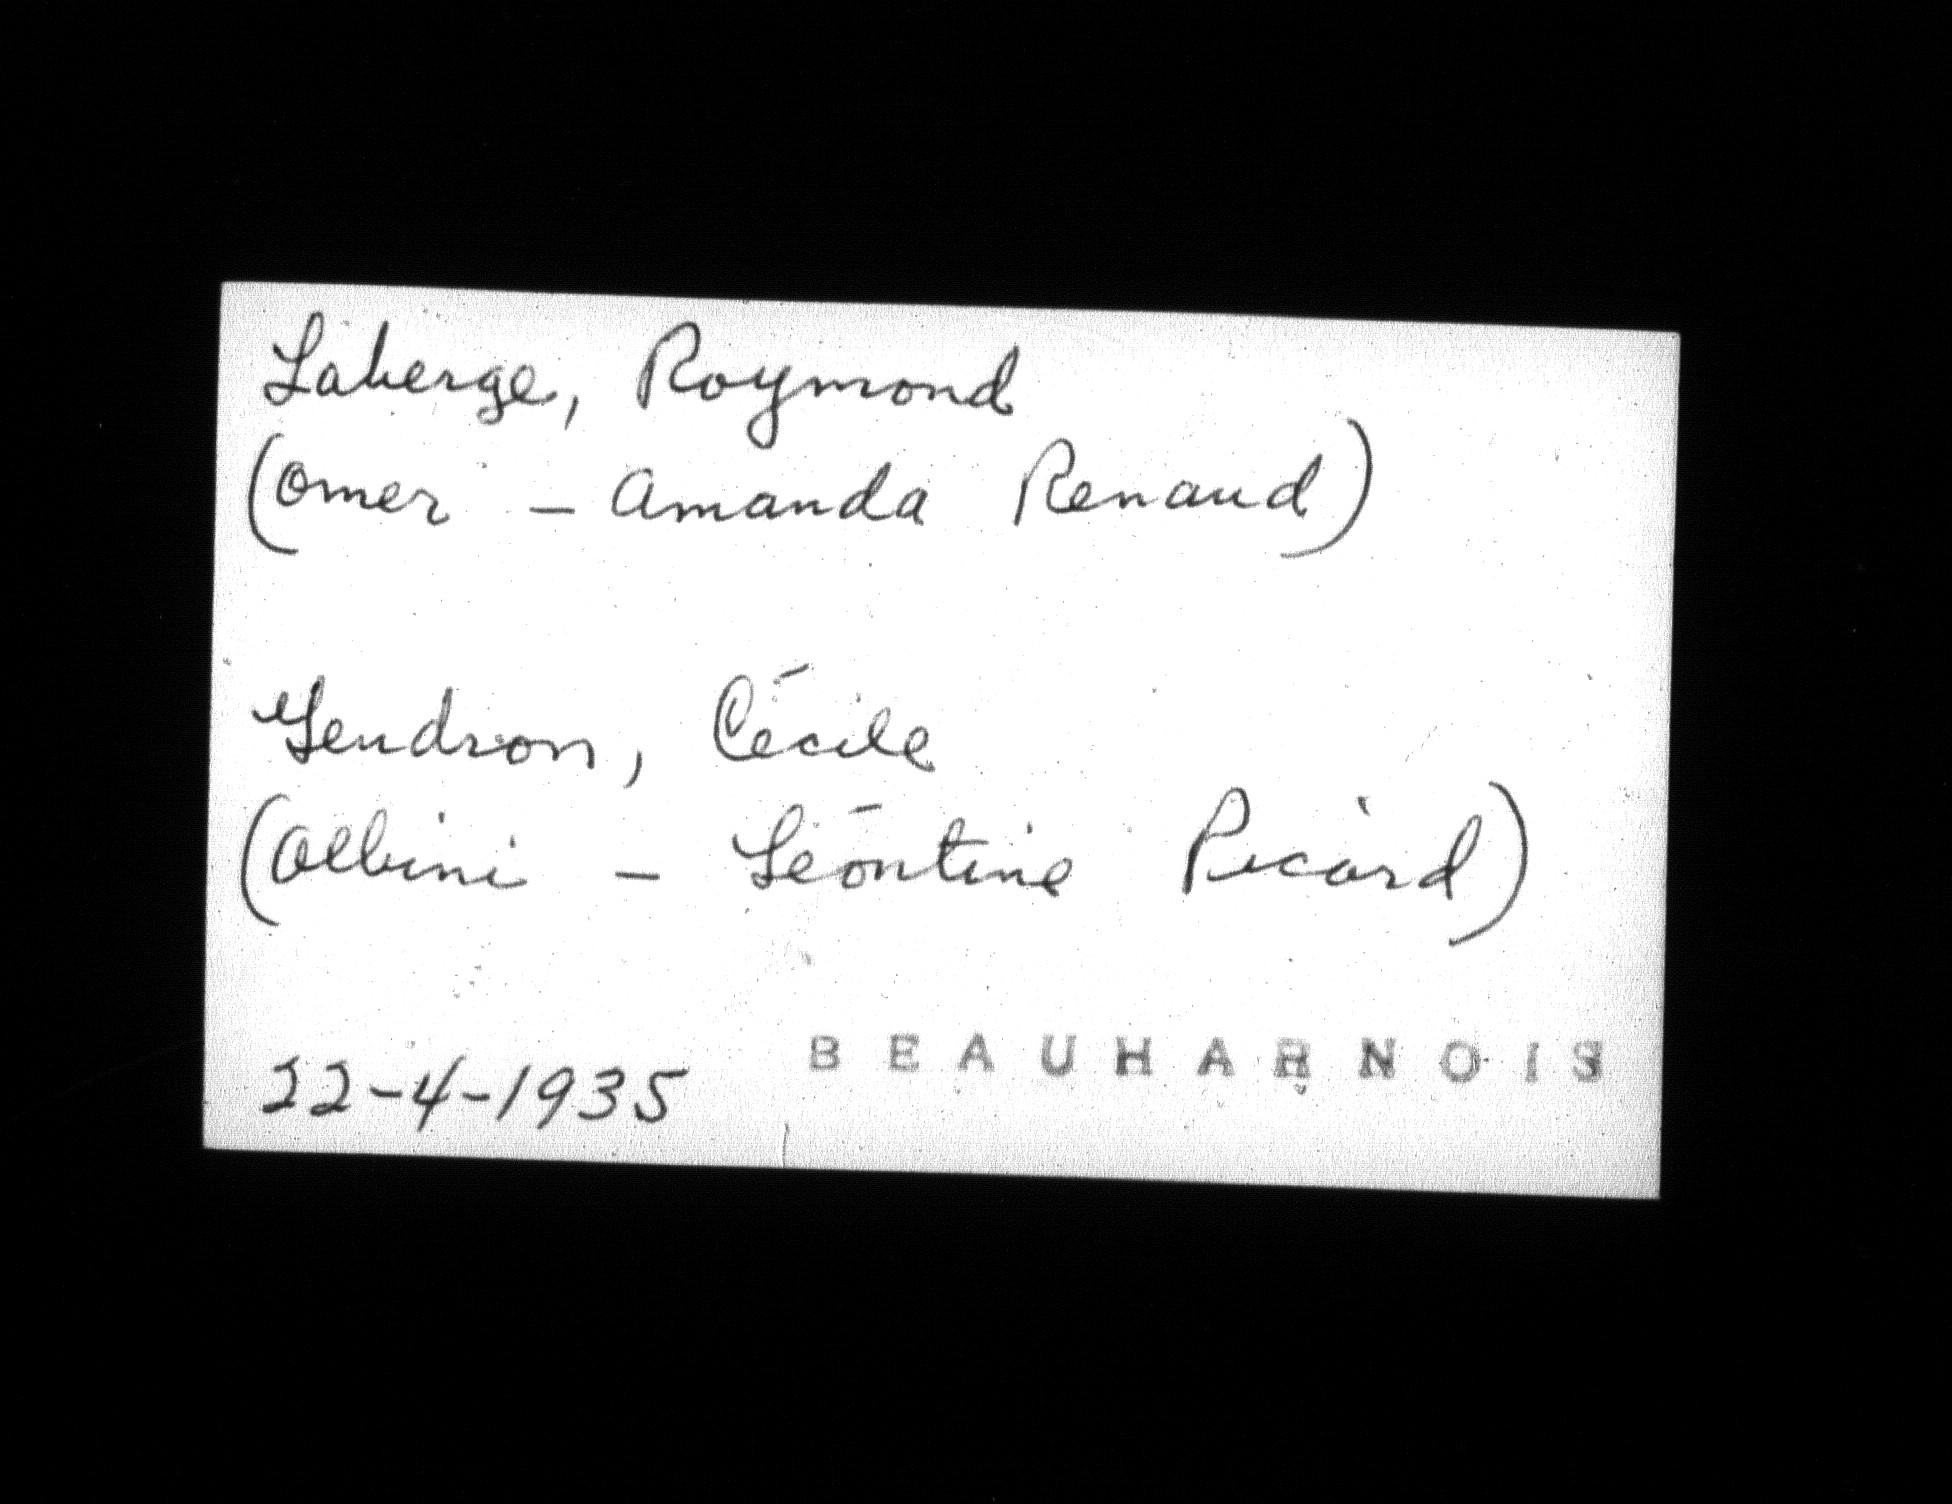 Laberge, Raymond
(Omer - Amanda Renaud)
Gendron, Cécile
(Albini - Léontine Picard)
22-4-1935 BEAUHARNOIS